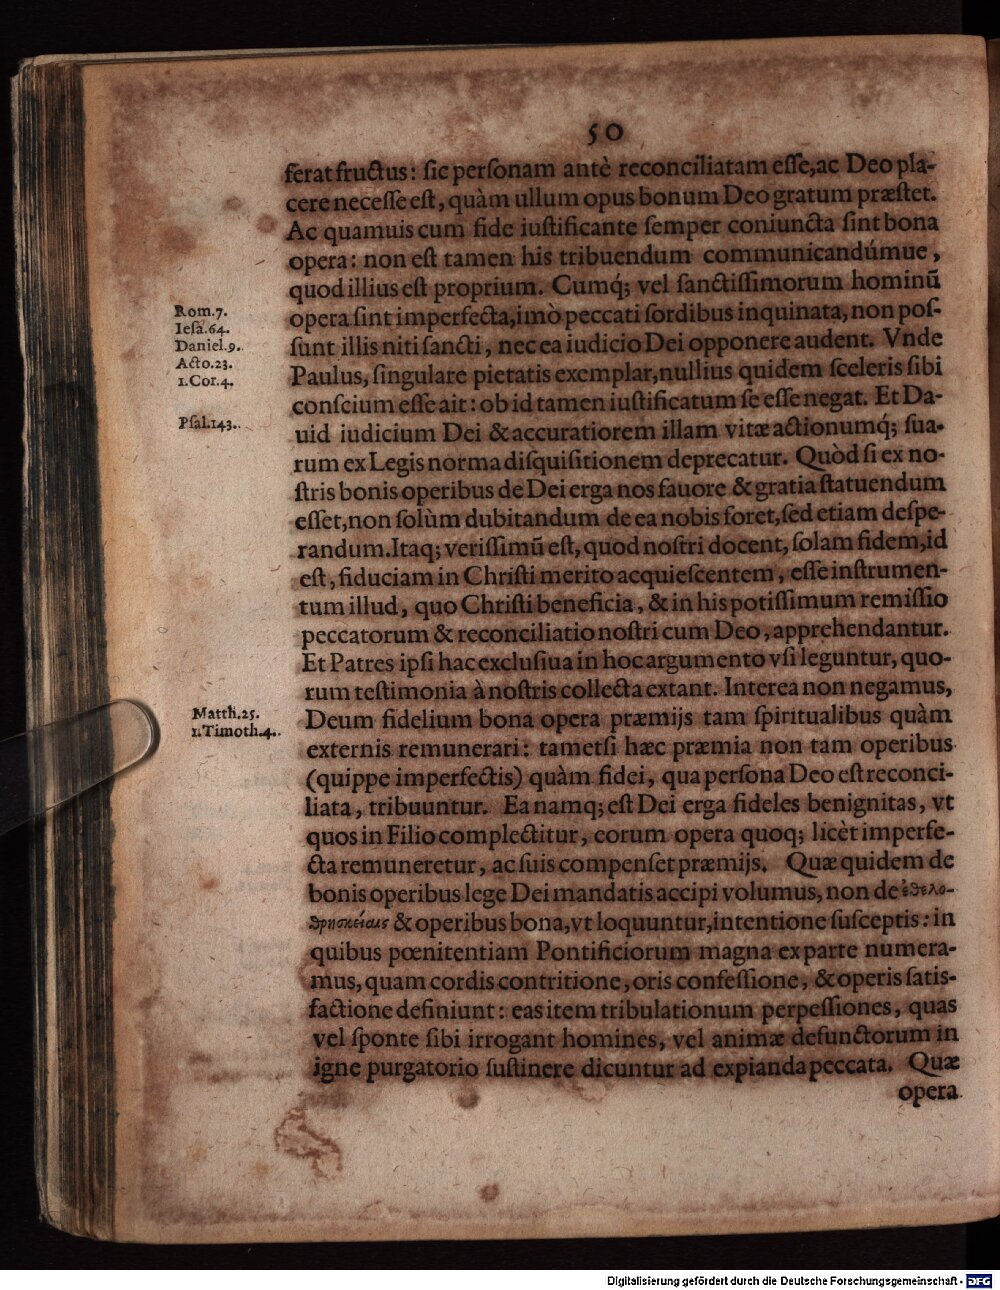 50
ferat fructus: sic personam antè reconciliatam esse, ac Deo pla-
cere necesse est, quàm ullum opus bonum Deo gratum præstet.
Ac quamuis cum fide iustificante semper coniuncta sint bona
opera: non est tamen his tribuendum communicandúmue,
quod illius est proprium. Cumq́; vel sanctissimorum hominū
Rom.7.
opera sint imperfecta, imò peccati sordibus inquinata, non pos-
Iesa.64.
Daniel.9.
sunt illis niti sancti, nec ea iudicio Dei opponere audent. Vnde
Acto.23.
Paulus, singulare pietatis exemplar, nullius quidem sceleris sibi
1.Cor.4.
conscium esse ait: ob id tamen iustificatum se esse negat. Et Da-
Psal.143.
uid iudicium Dei & accuratiorem illam vitæ actionumq́; sua-
rum ex Legis norma disquisitionem deprecatur. Quòd si ex no-
stris bonis operibus de Dei erga nos fauore & gratia statuendum
esset, non solùm dubitandum de ea nobis foret, sed etiam despe-
randum. Itaq; verissimū est, quod nostri docent, solam fidem, id
est, fiduciam in Christi merito acquiescentem, esse instrumen-
tum illud, quo Christi beneficia, & in his potissimum remissio
peccatorum & reconciliatio nostri cum Deo, apprehendantur.
Et Patres ipsi hac exclusiua in hoc argumento vsi leguntur, quo-
rum testimonia à nostris collecta extant. Interea non negamus,
Matth.25.
Deum fidelium bona opera præmijs tam spiritualibus quàm
1.Timoth.4.
externis remunerari: tametsi hæc præmia non tam operibus
(quippe imperfectis) quàm fidei, qua persona Deo est reconci-
liata, tribuuntur. Ea namq; est Dei erga fideles benignitas, vt
quos in Filio complectitur, eorum opera quoq; licèt imperfe-
cta remuneretur, ac suis compenset præmijs. Quæ quidem de
bonis operibus lege Dei mandatis accipi volumus, non de ἐθελο-
θρησκείαις & operibus bona, vt loquuntur, intentione susceptis: in
quibus pœnitentiam Pontificiorum magna ex parte numera-
mus, quam cordis contritione, oris confessione, & operis satis-
factione definiunt: eas item tribulationum perpessiones, quas
vel sponte sibi irrogant homines, vel animæ defunctorum in
igne purgatorio sustinere dicuntur ad expianda peccata. Quæ
opera
Digitalisierung gefördert durch die Deutsche Forschungsgemeinschaft - DFG